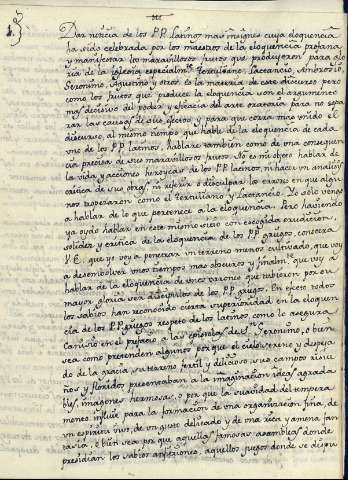 1.
Dar noticia de los P.P. latinos mas insignes cuya eloquencia
ha sido celebrada por los maestros de la eloquencia profana,
y manifestar los maravillosos frutos que produxeron para glo-
ria de la iglesia especialmte. Tertuliano, Lactancio, Ambrosio,
Geronimo, Agustino y otros es la materia de este discurso, pero
como los frutos que produce la eloquencia son el argumento
mas decisivo del poder y eficacia del arte oratoria para no sepa-
rar las causas de sus efectos y para que corra mas unido el
discurso, al mismo tiempo que hable de la eloquencia de cada
uno de los P.P. latinos, hablare tambien como de una consequen-
cia precisa de sus maravillosos frutos. No es mi objeto hablar de
la vida y acciones heroycas de los P.P. latinos, ni hacer un analisis
critica de sus obras, ni referir o desculpar los errores en que algu-
nos tropezaron como el Tertuliano y Lactancio. Yo solo vengo
a hablar de lo que pertenece a la eloquencia. Pero haviendo
ya oydo hablar en este mismo sitio con escogida erudicion,
solidez y critica de la eloquencia de los P.P. griegos, conocera
V.E. que yo voy a penetrar un terreno menos cultivado, que voy
a desembolver unos tiempos mas obscuros y finalmte. que voy a
hablar de la eloquencia de unos varones que tubieron por su
mayor gloria ser discipulos de los P.P. griegos. En efecto todos
los sabios han reconocido cierta superioridad en la eloquen-
cia de los P.P. griegos respeto de los latinos como lo asegura
Canisio en el prefacio a las epistolas de S. Geronimo, o bien
sea como pretenden algunos porque el cielo sereno y despeja-
do de la gracia, su terreno fertil y delicioso, sus campos risue-
ños y floridos presentaban a la imaginacion ideas agrada-
bles, imagenes hermosas, o por que la suavidad del tempera-
mento influie para la formacion de una organizacion fina, de
un espiritu vivo, de un gusto delicado y de una rica y amena fan-
tasia, o bien sea por que aquellas famosas asambleas donde
presidian los sabios atenienses, aquellos juegos donde se dispu-